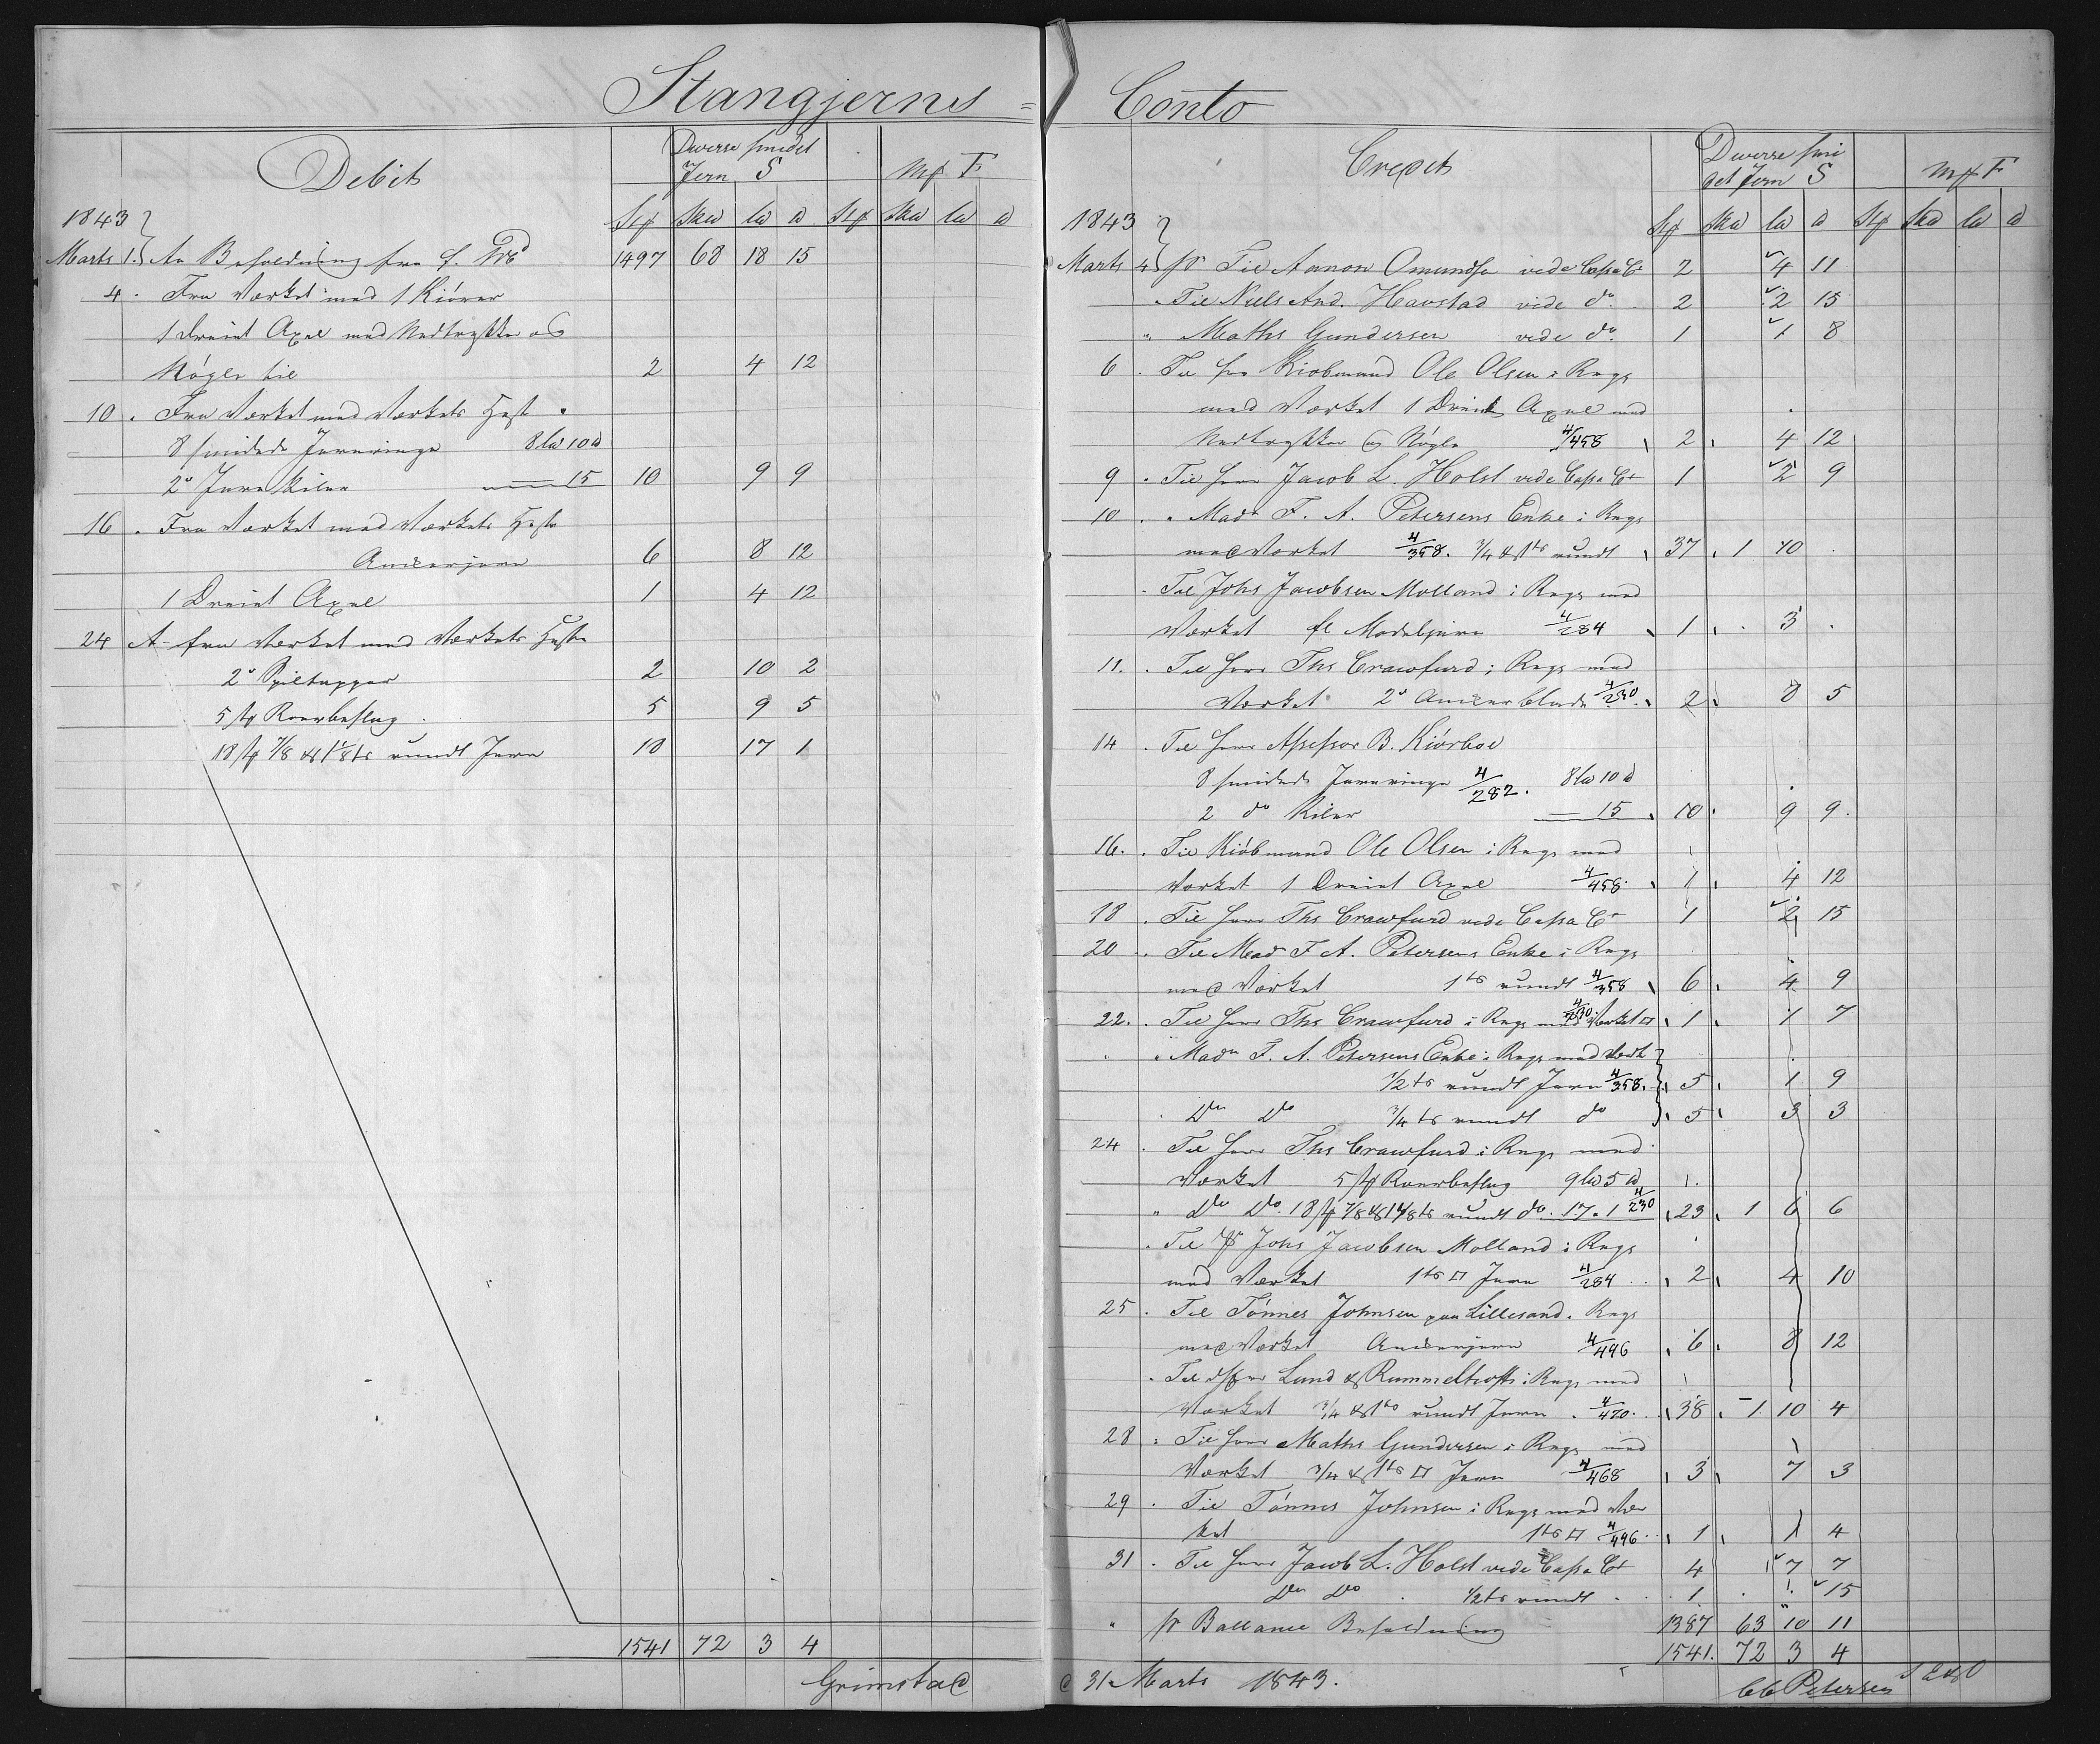 Stangjerns = Conto
Debit
Diverse smedet
Jern S
Mf F
Stf Skw lw w Stf Skw lw w
1843
Marts 1. An Beholdning fra f. Prt 1497 68 18 15
4. Fra Værket med 1 Kiører
1 Dreiet Axel med Nedtrykker og
Nøgle til 2 4 12
10. Fra Værket med Værkets Heste
8 smidede Jernringe 8 lw 10 w
2 Jern Kiler 15 10 9 9
16. Fra Værket med Værkets Heste
Ankerjern 6 8 12
1 Dreiet Axel 1 4 12
24 A fra Værket med Værkets Heste
2 Spiltapper 2 10 2
5 Roerbeslag 5 9 5
18 7/8 & 1 1/8 to rundt Jern 18 17 1
1541 72 3 4
Grimstad
Credit
Diverse smi
det Jern S
Mf F
Stf Skw lw w Stf Skw lw w
1843
Marts 4 pr Til Aanon Omundsen vide Cassa Ct 2 4 11
Til Niels And. Havstad vide do 2 2 15
" Maths Gundersen vide do 1 1 8
6. Til Hr Kiøbmand Ole Olsen i Regs
med Værket 1 Dreiet Axel med
Nedtrykker og Nøgle 4/458 2 4 12
9. Til Herr Jacob L. Holst vide Cassa Ct 1 2 9
10. " Madm F. A. Petersens Enke i Regs
med Værket 4/358. 3/4 & 1to rundt 37 1 10
Til Johs Jacobsen Molland i Regs med
Værket fl Modeljern 4/284 1 3
11. Til Herr Ths Crawfurd i Regs med
Værket 2 Ankerblade 4/230 2 8 5
14. Til Herr Assessor B. Kiørboe
8 smidede Jernringe 4/282. 8 lw 10 w
2 do Kiler 15 10 9 9
16. Til Kiøbmand Ole Olsen i Regs med
Værket 1 Dreiet Axel 4/458 1 4 12
18. Til Herr Ths Crawfurd vide Cassa Ct 1 2 15
20. Til Mad F A. Petersens Enke i Regs
med Værket 1to rundt 4/358 6 4 9
22. Til Herr Ths Crawfurd i Regs med Værket □ 4/230 1 1 7
" Madm F. A. Petersens Enke i Regs med Værk
1/2to rundt Jern 4/358. 5 1 9
Do Do 3/4to rundt do 5 3 3
24. Til Herr Ths Crawfurd i Regs med
Værket 5 Roerbeslag 9 lw 5 w
" Do Do. 18 7/8 & 1 1/8to rundt do. 17 " 1 4/230 23 1 6 6
Til Johs Jacobsen Molland i Regs
med Værket 1to □ Jern 4/284 2 4 10
25. Til Tønnes Johnsen paa Lillesand i Regs
med Værket Ankerjern 4/496 6 8 12
Til Lund & Rummelhoff i Regs med
Værket 3/4 & 1to rundt Jern 4/420 38 1 10 4
28. Til Herr Maths Gundersen i Regs med
Værket 3/4 & 1to □ Jern 4/468 3 7 3
29. Til Tønnes Johnsen i Regs med Vær
ket 1to □ 4/496 1 1 4
31. Til Herr Jacob L. Holst vide Cassa Ct 4 7 7
Do Do 1/2to rundt 1 15
" pr Ballance Beholdning 1387 63 10 11
1541. 72 3 4
d 31 Marts 1843.
Petersen